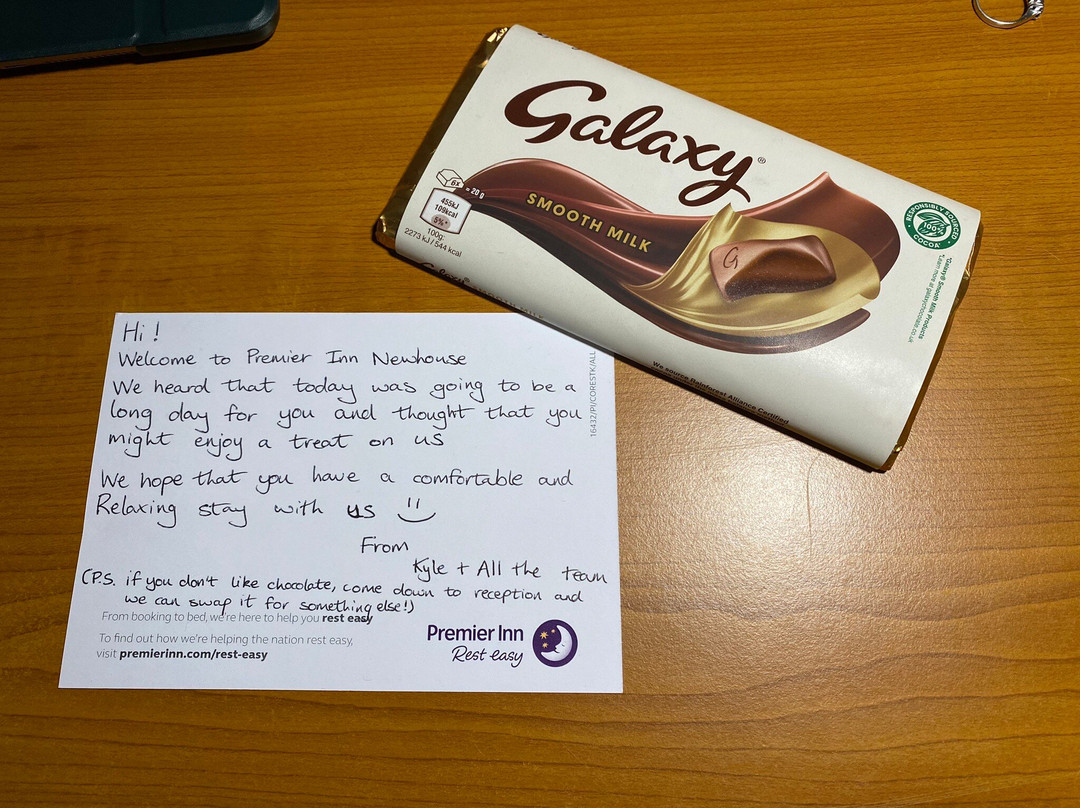 Galaxy®
SMOOTH MILK
6x = 20 g
455kJ
109kcal
5%*
100g:
2273 kJ / 544 kcal
G
RESPONSIBLY SOURCED
100%
COCOA*
*Galaxy® Smooth Milk Products
*Learn more at galaxychocolate.co.uk
We source Rainforest Alliance Certified
Galaxy
Hi !
Welcome to Premier Inn Newhouse
We heard that today was going to be a
long day for you and thought that you
might enjoy a treat on us
We hope that you have a comfortable and
Relaxing stay with us
From
Kyle + All the team
(P.S. if you don't like chocolate, come down to reception and
we can swap it for something else!)
From booking to bed, we're here to help you rest easy
To find out how we're helping the nation rest easy,
visit premierinn.com/rest-easy
Premier Inn
Rest easy
16432/PI/CORESTK/ALL